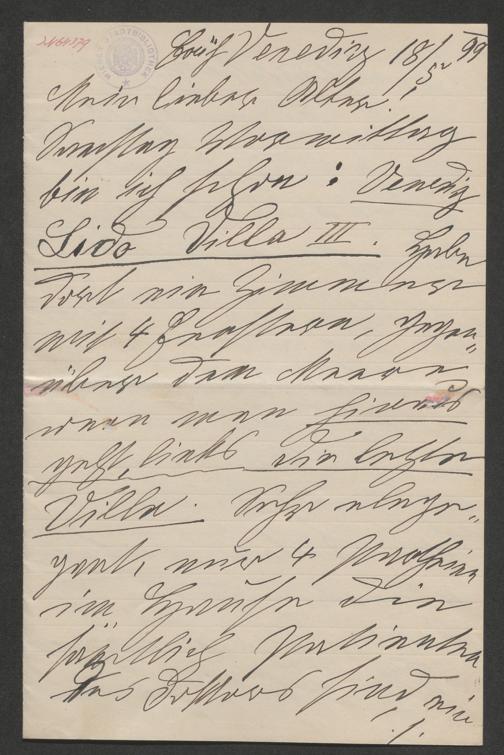 Venedig 18/5 99
Mein lieber Alter!
Samstag Vormittag
bin ich schon : Venedig
Lido Villa III. Habe
dort ein Zimmer
mit 4 Fenstern, gegen-
über dem Meere
wenn man hinaus
geht, links die letzte
Villa. Sehr elegant,
nur 4 Partheien
im Hause die
sämtlich Patienten
des Doktors sind